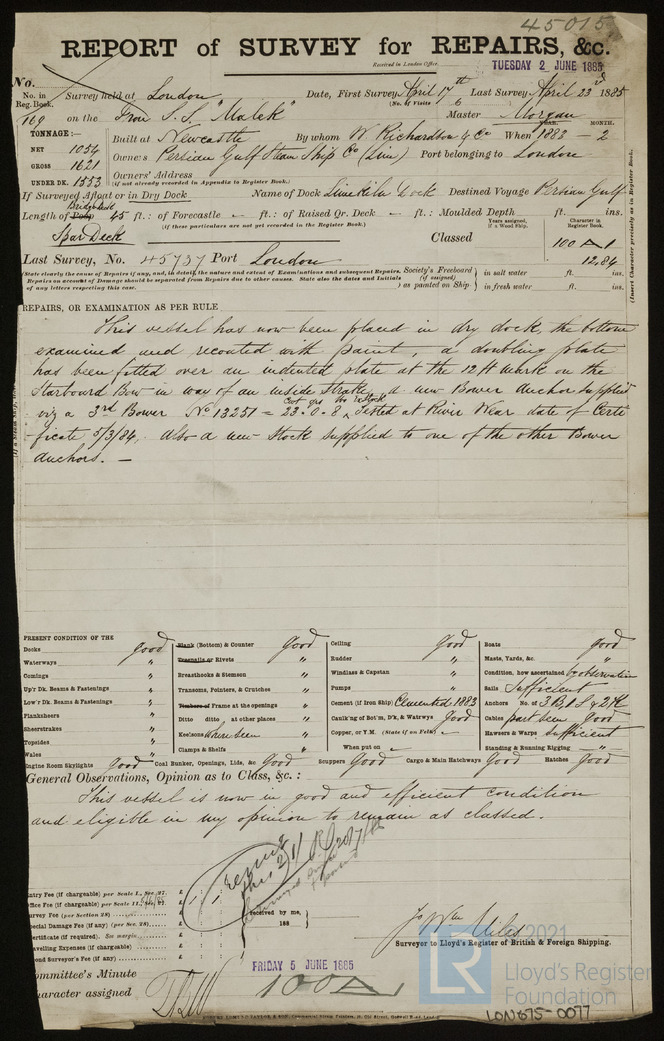 45015
REPORT of SURVEY for REPAIRS, &c.
Received in London Office
TUESDAY 2 JUNE 1885
No.
No. in Reg. Book. Survey held at London Date, First Survey April 17th Last Survey April 23rd 1885
(No. of Visits 6
169 on the Iron S.S. "Malek" Master Morgan
TONNAGE:— YEAR. MONTH.
NET 1054 Built at Newcastle By whom W. Richardson & Co When 1883 — 2
GROSS 1621 Owners Persian Gulf Steam Ship Co (Lim) Port belonging to London
UNDER DK. 1553 Owners' Address
(if not already recorded in Appendix to Register Book.)
If Surveyed Afloat or in Dry Dock Name of Dock Limekiln Dock Destined Voyage Persian Gulf
Bridge
Length of Poop 45 ft.: of Forecastle — ft.: of Raised Qr. Deck — ft.: Moulded Depth ft. ins.
(if these particulars are not yet recorded in the Register Book.)
Spar Deck Classed
Years assigned, if a Wood Ship.
Character in Register Book.
100 A 1
12,84
(Insert Character precisely as in Register Book.
Last Survey, No. 45737 Port London
(State clearly the cause of Repairs if any, and, in detail, the nature and extent of Examinations and subsequent Repairs.
Repairs on account of Damage should be separated from Repairs due to other causes. State also the dates and Initials
of any letters respecting this case.
Society's Freeboard (if assigned) as painted on Ship
in salt water ft. ins.
in fresh water ft. ins.
REPAIRS, OR EXAMINATION AS PER RULE
This vessel has now been placed in dry dock, the bottom
examined and recoated with paint, a doubling plate
has been fitted over an indented plate at the 12 ft mark on the
Starboard Bow in way of an inside Strake, a new Bower Anchor supplied
Cwt qrs lbs
viz a 3rd Bower No 13251 = 23.0.8 Tested at River Wear date of Certi
ficate 5/3/84. Also a new Stock supplied to one of the other Bower
anchors. —
PRESENT CONDITION OF THE
Decks good
Waterways "
Comings "
Up'r Dk. Beams & Fastenings "
Low'r Dk. Beams & Fastenings "
Planksheers "
Sheerstrakes "
Topsides "
Wales "
Engine Room Skylights Good
Plank (Bottom) & Counter Good
Treenails or Rivets "
Breasthooks & Stemson "
Transoms, Pointers, & Crutches "
Timbers or Frame at the openings "
Ditto ditto at other places "
Keelsons where seen "
Clamps & Shelfs "
Coal Bunker, Openings, Lids, &c Good
Ceiling Good
Rudder "
Windlass & Capstan "
Pumps "
Cement (if Iron Ship) Cemented 1883
Caulk'ng of Bot'm, D'k, & Watrwys Good
Copper, or Y.M. (State if on Felt)
When put on
Scuppers Good Cargo & Main Hatchways Good
Boats good
Masts, Yards, &c. "
Condition, how ascertained by observation
Sails Sufficient
Anchors No. of 3 B 1 S & 2 K
Cables part seen Good
Hawsers & Warps Sufficient
Standing & Running Rigging "
Hatches Good
General Observations, Opinion as to Class, &c.:
This vessel is now in good and efficient condition
and eligible in my opinion to remain as classed.
Entry Fee (if chargeable) per Scale I., Sec. 27. £
Office Fee (if chargeable) per Scale II., Sec. 27. £
Survey Fee (per Section 28) £
Special Damage Fee (if any) (per Sec. 28) £
Certificate (if required). See margin £
Travelling Expenses (if chargeable) £
Second Surveyor's Fee (if any) £
received by me,
188
Jo Wm Miles
Surveyor to Lloyd's Register of British & Foreign Shipping.
Committee's Minute FRIDAY 5 JUNE 1885
Character assigned 100 A
2021
LR
Lloyd's Register
Foundation
LON675-0077